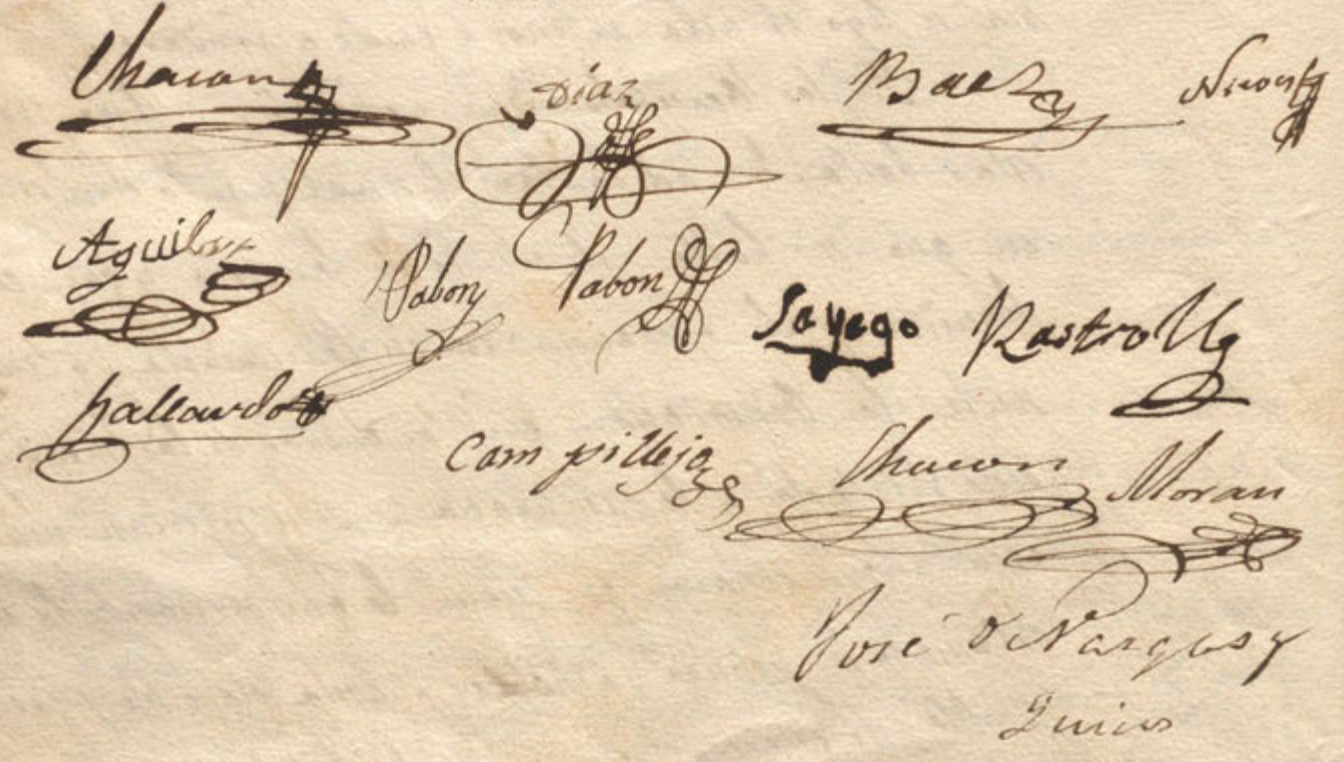 Chacon Diaz Baez
Aguilar Pabon Pabon Sayego Rastrollo
Gallardo
Campillejo Chacon Moran
José de Vargas y